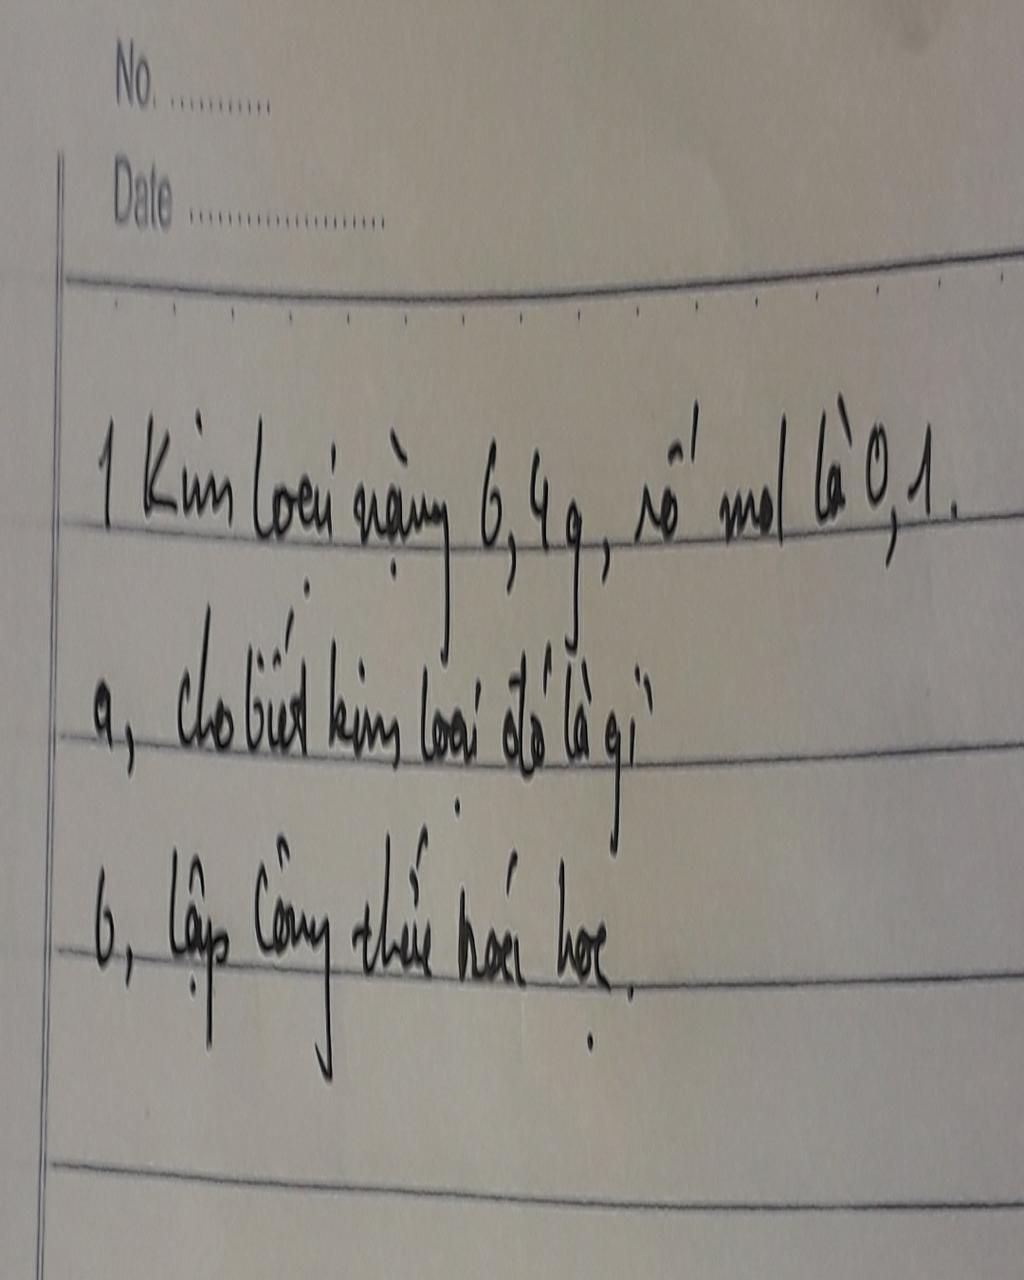 No. ...........
Date ....................
1 kim loại nặng 6,4g, số mol là 0,1.
a, cho biết kim loại đó là gì
b, lập công thức hoá học.